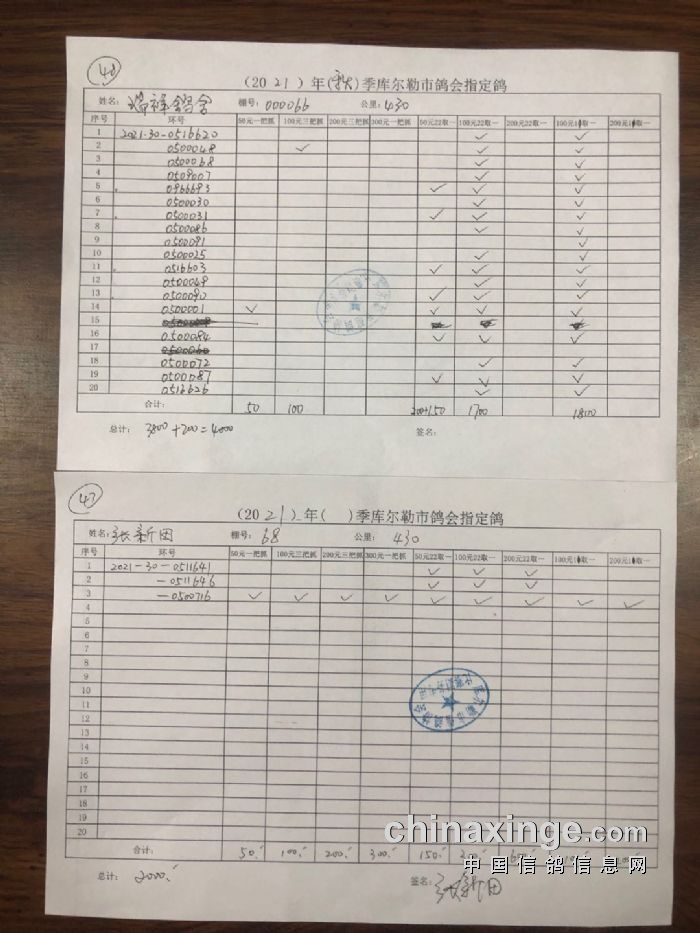 40
(2021)年(秋)季库尔勒市鸽会指定鸽
姓名: 瑞祥鸽舍 棚号: 000066 公里: 430
序号 环号 50元一把抓 100元三把抓 200元三把抓 300元一把抓 50元22取一 100元22取一 200元22取一 100元10取一 200元10取一
1 2021-30-0516620 ✓ ✓
2 0500048 ✓ ✓ ✓
3 0500068 ✓ ✓
4 0509007 ✓ ✓
5 0966693 ✓ ✓ ✓
6 0500030 ✓ ✓
7 0500031 ✓ ✓ ✓
8 0500086 ✓ ✓
9 0500091 ✓
10 0500025 ✓ ✓
11 0516603 ✓ ✓ ✓
12 0500049 ✓ ✓
13 0500090 ✓ ✓ ✓
14 0500001 ✓ ✓ ✓ ✓
15
16 0500084 ✓ ✓ ✓
17 0500060
18 0500072 ✓ ✓
19 0500087 ✓ ✓ ✓
20 0516626 ✓ ✓
合计: 50 100 200+150 1700 1800
总计: 3800+200=4000 签名:
43
(2021)年( )季库尔勒市鸽会指定鸽
姓名: 张新田 棚号: 68 公里: 430
序号 环号 50元一把抓 100元三把抓 200元三把抓 300元一把抓 50元22取一 100元22取一 200元22取一 100元10取一 200元10取一
1 2021-30-0511641 ✓ ✓ ✓
2 -0511646 ✓ ✓ ✓
3 -0500716 ✓ ✓ ✓ ✓ ✓ ✓ ✓ ✓ ✓
4
5
6
7
8
9
10
11
12
13
14
15
16
17
18
19
20
合计: 50. 100. 200. 300. 150.
总计: 2000. 签名: 张新田
chinaxinge.com
中国信鸽信息网